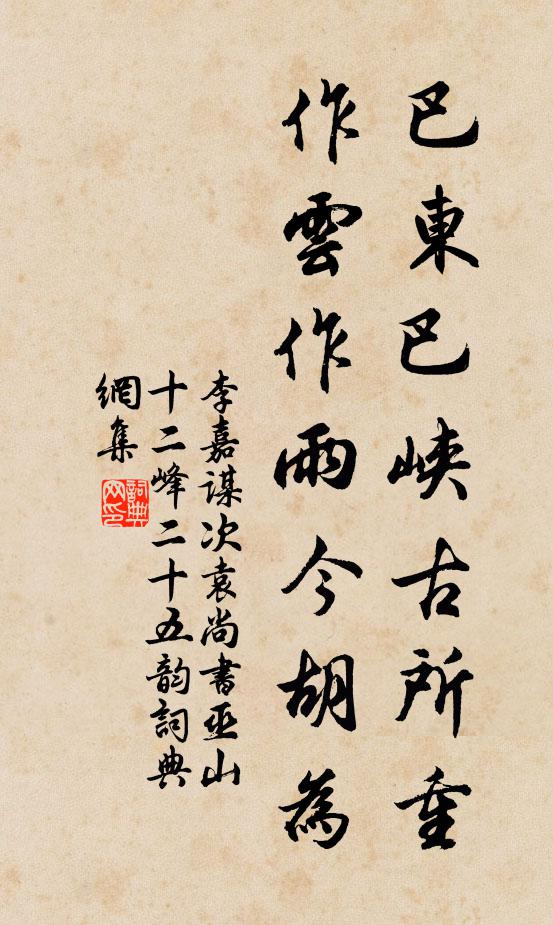 巴東巴峽古所重
作雲作雨今胡為
李嘉謀次袁尚書巫山
十二峰二十五韵詞典
網集
詞典
网印